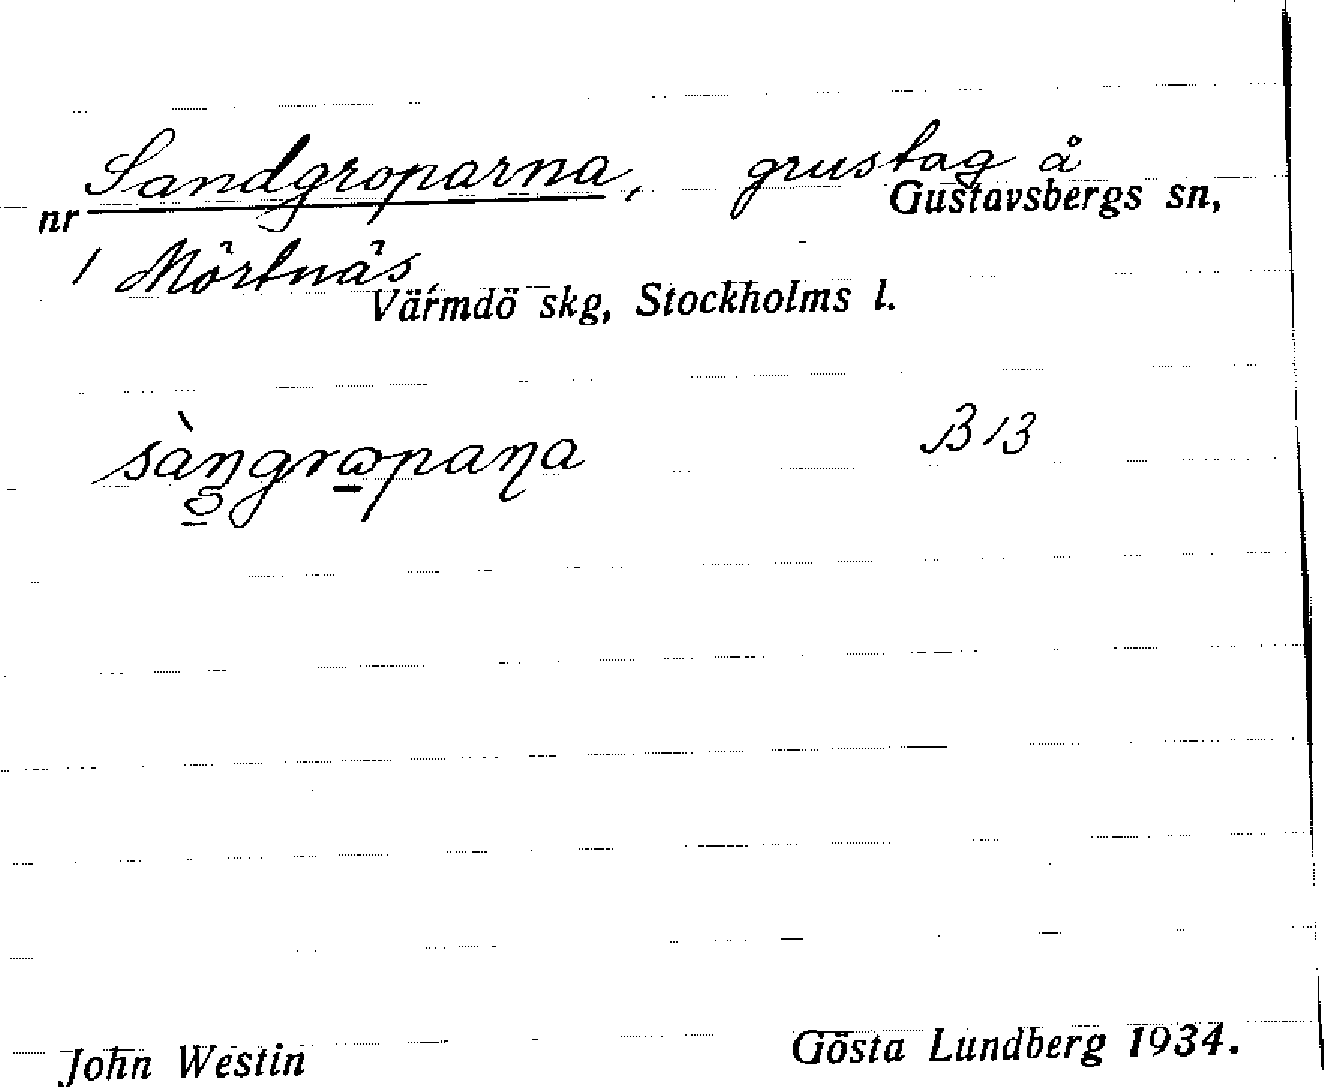 Sandgroparna, grustag å
nr Gustavsbergs sn,
1 Mörtnäs,
Värmdö skg, Stockholms l.
sàŋgrɷpaɳa B13
John Westin Gösta Lundberg 1934.